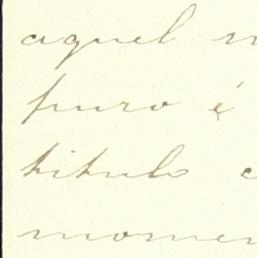 aquel
puro é
titulo
momen